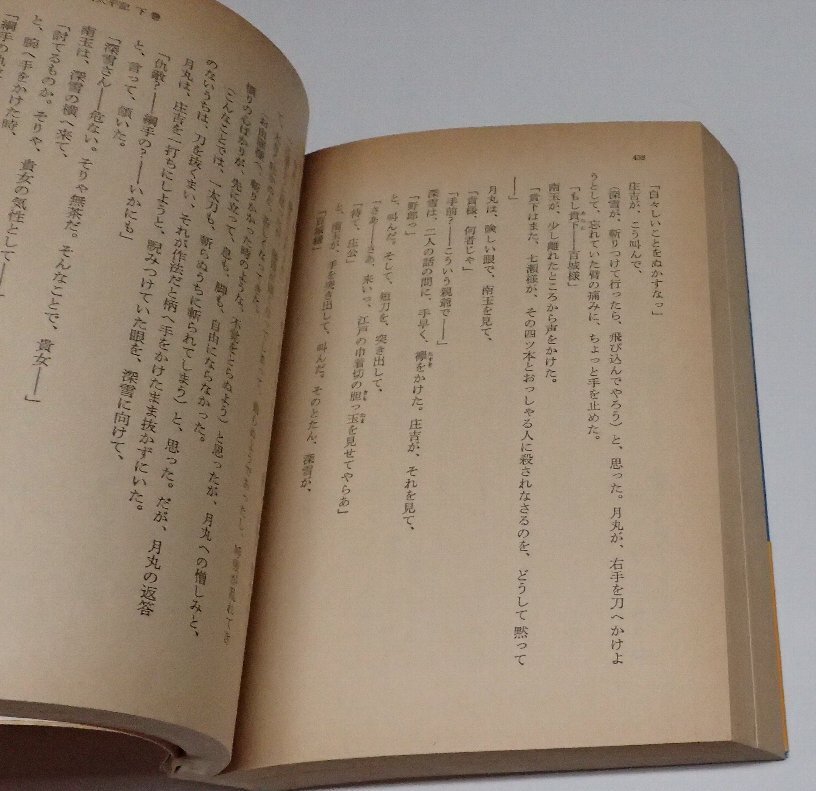 438
「白々しいことをぬかすなっ」
庄吉が、こう叫んで、
(深雪が、斬りつけて行ったら、飛び込んでやろう)と、思った。月丸が、右手を刀へかけよ
うとして、忘れていた臂の痛みに、ちょっと手を止めた。
「もし貴下――百城様」
南玉が、少し離れたところから声をかけた。
「貴下はまた、七瀬様が、その四ツ本とおっしゃる人に殺されなさるのを、どうして黙って
――」
月丸は、険しい眼で、南玉を見て、
「貴様、何者じゃ」
「手前?――こういう親爺で――」
深雪は、二人の話の間に、手早く、襷をかけた。庄吉が、それを見て、
「野郎っ」
と、叫んだ。そして、短刀を、突き出して、
「さあ――さあ、来いっ、江戸の巾着切の胆っ玉を見せてやらあ」
「待て、庄公」
と、南玉が、手を突き出して、叫んだ。そのとたん、深雪が、
「百城様」
太平記 下巻
憤りの心ばかりが、先に立って、息も、脚も、自由にならなかった。
(こんなことでは、一太刀も、斬らぬうちに斬られてしまう)と、思った。だが、月丸の返答
のないうちは、刀を抜くまい、それが作法だと柄へ手をかけたまま抜かずにいた。
月丸は、庄吉を一打ちにしようと、睨みつけていた眼を、深雪に向けて、
「仇敵?――綱手の?――いかにも」
と、言って、頷いた。
「深雪さん――危ない。そりゃ無茶だ。そんなことで、貴女――」
南玉は、深雪の横へ来て、
「討てるものか。そりゃ、貴女の気性として――」
と、腕へ手をかけた時、